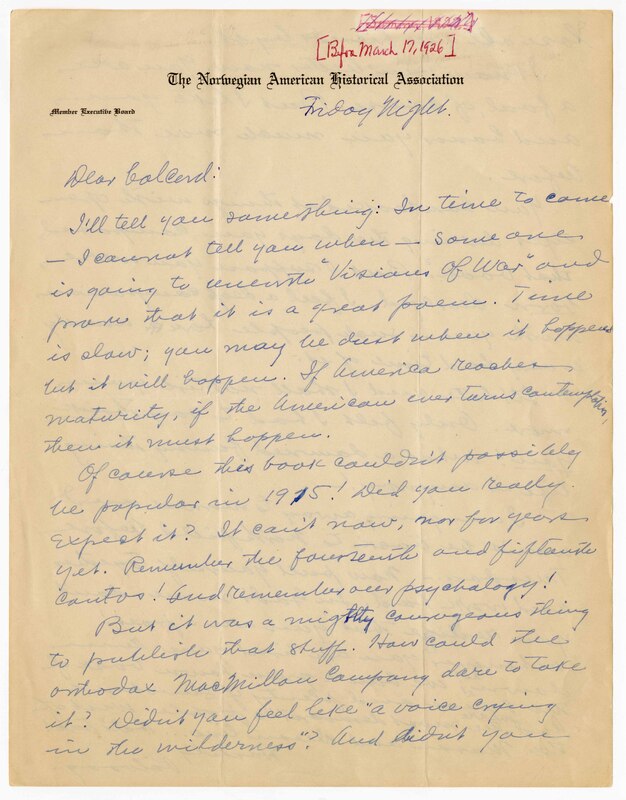 [Before March 17, 1926]
The Norwegian American Historical Association
Member Executive Board
Friday Night.
Dear Colcord:
I'll tell you something: In time to come
— I cannot tell you when — some one
is going to unearth "Visions Of War" and
prove that it is a great poem. Time
is slow; you may be dust when it happens
but it will happen. If America reaches
maturity, if the American ever turns contemplative,
then it must happen.
Of course this book couldn't possibly
be popular in 1915! Did you really
expect it? It can't now, nor for years
yet. Remember the fourteenth and fifteenth
cantos! And remember our psychology!
But it was a mighty courageous thing
to publish that stuff. How could the
orthodox MacMillan Company dare to take
it? Didn't you feel like "a voice crying
in the wilderness"? And didn't you